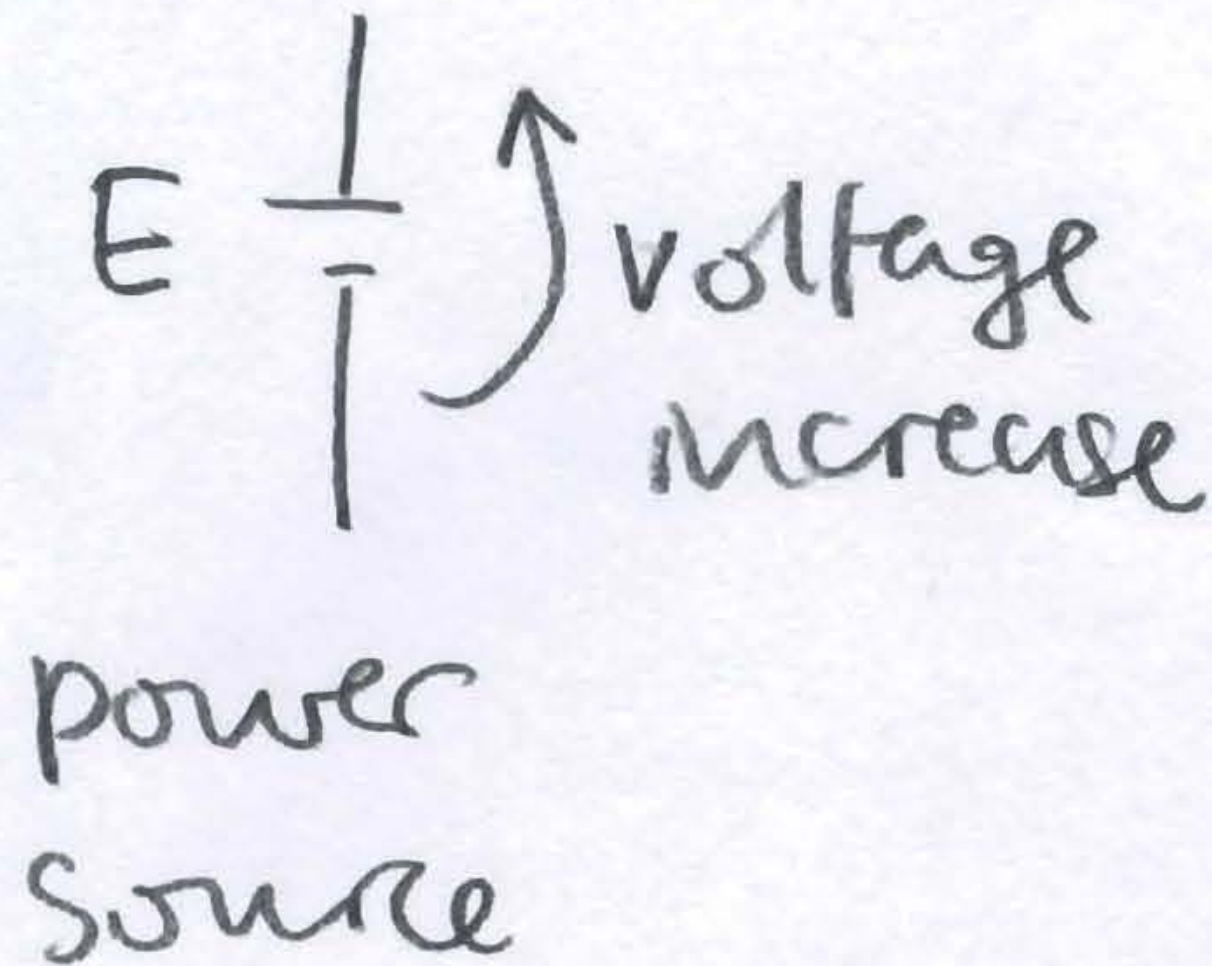 E
voltage
increase
power
source